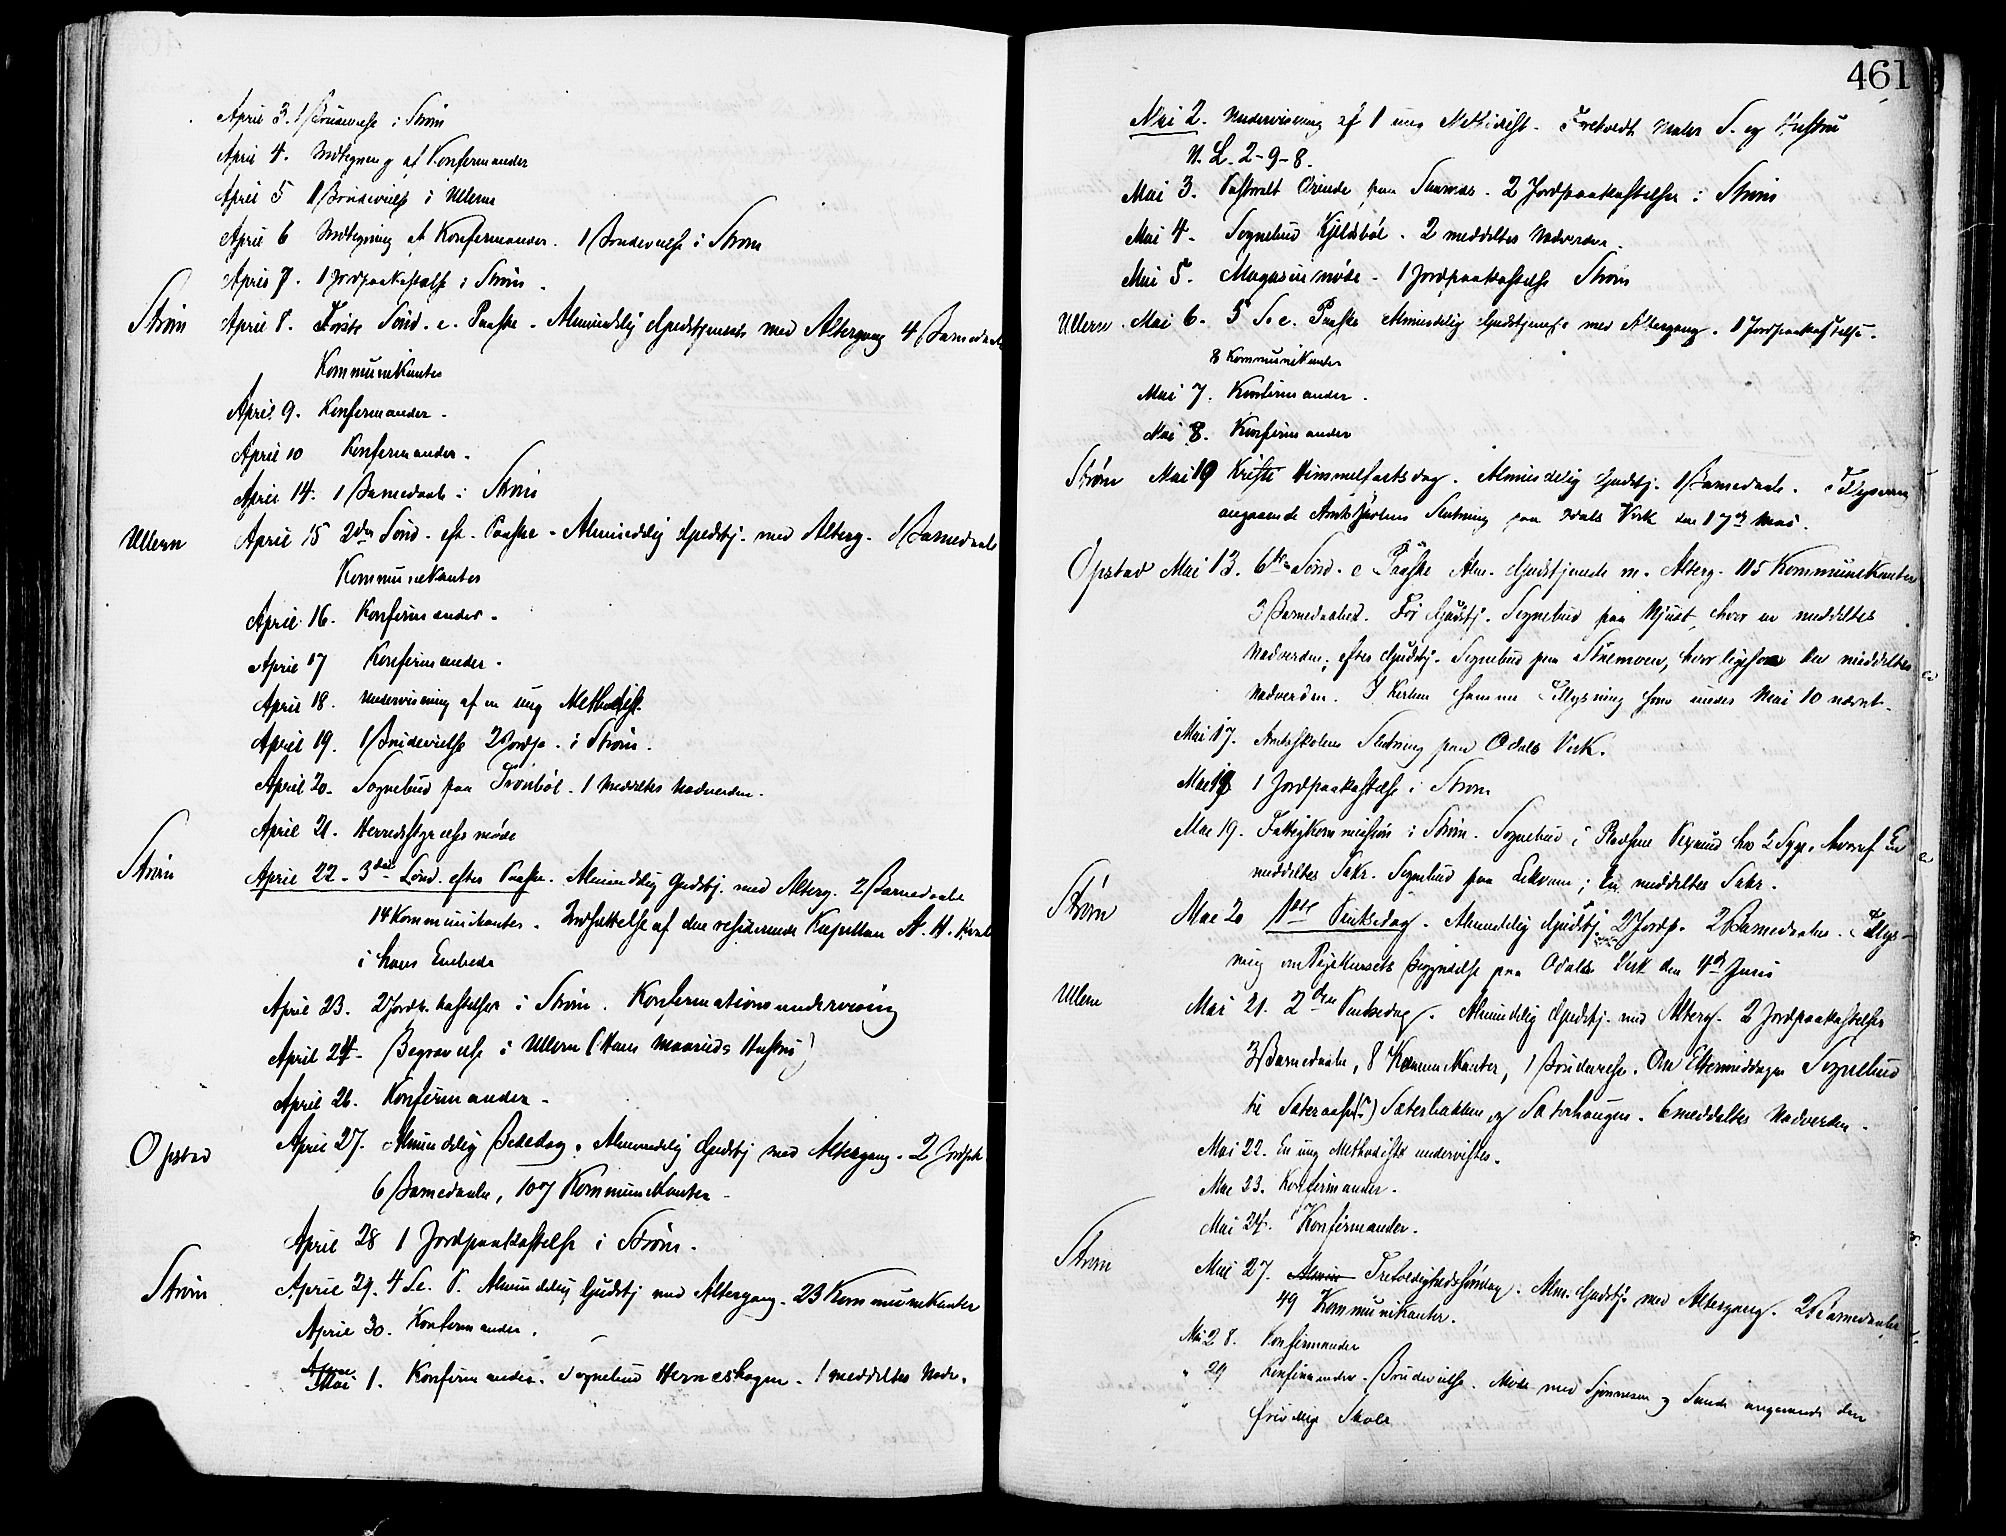 April 3. 1 Brudevielse i Strøm
April 4. Indtegning af Konfermander
April 5 1 Brudevielse i Ullern
April 6 Indtegning af Konfermander. 1 Brudevielse i Strøm
April 7. 1 Jordpaakastelse i Strøm.
Strøm April 8. Første Sønd. e. Paaske. Almindelig Gudstjeneste med Altergang 4 Barnedaab
Kommunikanter
April 9. Konfermander.
April 10 Konfermander.
April 14. 1 Barnedaab i Strøm
Ullern April 15 2den Sønd. eft. Paaske. Almindelig Gudstj. med Alterg. 1 Barnedaab
Kommunikanter
April 16. Konfirmander.
April 17 Konfirmander.
April 18. Undervisning af en ung Methodist.
April 19. 1 Brudevielse 2 Jordp. i Strøm.
April 20. Sognebud paa Trønbøl. 1 Meddeltes Nadverden.
April 21. Herredsstyrelsesmøde
Strøm April 22. 3die Sønd. efter Paaske. Almindelig Gudstj. med Alterg. 2 Barnedaabe
14 Kommunikanter. Indsættelse af den residerende Kapellan A. H.
i hans Embede
April 23. 2 Jordp.kastelser i Strøm. Konfirmationsundervisning
April 24. Begravelse i Ullern (Hans Hustru)
April 26. Konfirmander.
Opstad April 27. Almindelig Bededag. Almindelig Gudstj med Altergang. 2 Jordpk
6 Barnedaabe, 107 Kommunikanter.
April 28 1 Jordpaakastelse i Strøm.
Strøm April 29. 4 S. e. P. Almindelig Gudstj med Altergang. 23 Kommunikanter
April 30. Konfirmander.
April
Mai 1. Konfirmander. Sognebud Herneshagen. 1 meddeltes Nadv.
461
Mai 2. Undervisning af 1 ung Methodist. S. og Hustru
N. L. 2-9-8.
Mai 3. Ærinde paa Sannæs. 2 Jordpaakastelser i Strøm
Mai 4. Sognebud Kjeldsbøl. 2 meddeltes Nadverden.
Mai 5. Magasinmøde. 1 Jordpaakastelse Strøm
Ullern. Mai 6. 5 S. e. Paaske Almindelig Gudstjeneste med Altergang. 1 Jordpaakastelse.
8 Kommunikanter
Mai 7. Konfirmander.
Mai 8. Konfirmander
Strøm Mai 10 Kristi Himmelfartsdag. Almindelig Gudstj. 1 Barnedaab. Tillysning
angaaende Amtsskolens Slutning paa Odals Verk den 17de Mai.
Opstad Mai 13. 6te Sønd. e Paaske Alm. Gudstjeneste m. Alterg. 115 Kommunikanter
3 Barnedaabe. Før Gudstj. Sognebud paa, hvor en meddeltes
Nadverden; efter Gudstj. Sognebud paa, hvor ligesaa En meddeltes
Nadverden. I Kirken samme Tillysning som under Mai 10 nævnt.
Mai 17. Amtsskolens Slutning paa Odals Verk.
Mai 18 1 Jordpaakastelse i Strøm
Mai 19. Fattigkommission i Strøm. Sognebud i hos 2 Syge, hvoraf En
meddeltes Sakr. Sognebud paa; En meddeltes Sakr.
Strøm Mai 20 1ste Pintsedag. Almindelig Gudstj. 2 Jordp. 2 Barnedaabe. Tillys-
ning om Pigekursets Begyndelse paa Odals Verk den 4de Juni
Ullern Mai 21. 2den Pintsedag. Almindelig Gudstj. med Alterg. 2 Jordpaakastelser
3 Barnedaabe, 8 Kommunikanter, 1 Brudevielse. Om Eftermiddagen Sognebud
til Sæteraasen(?) Sæterbakken og Sæterhaugen. 6 meddeltes Nadverden.
Mai 22. En ung Methodist undervistes.
Mai 23. Konfirmander.
Mai 24. Konfirmander.
Strøm Mai 27. Almin Trefoldighedssøndag. Alm. Gudstj. med Altergang. 2 Barnedaabe
49 Kommunikanter.
Mai 28. Konfirmander
" 29 Konfirmander. Brudevielse. Møde med Sjønnesen og Sande angaaende den
" frivillige Skole